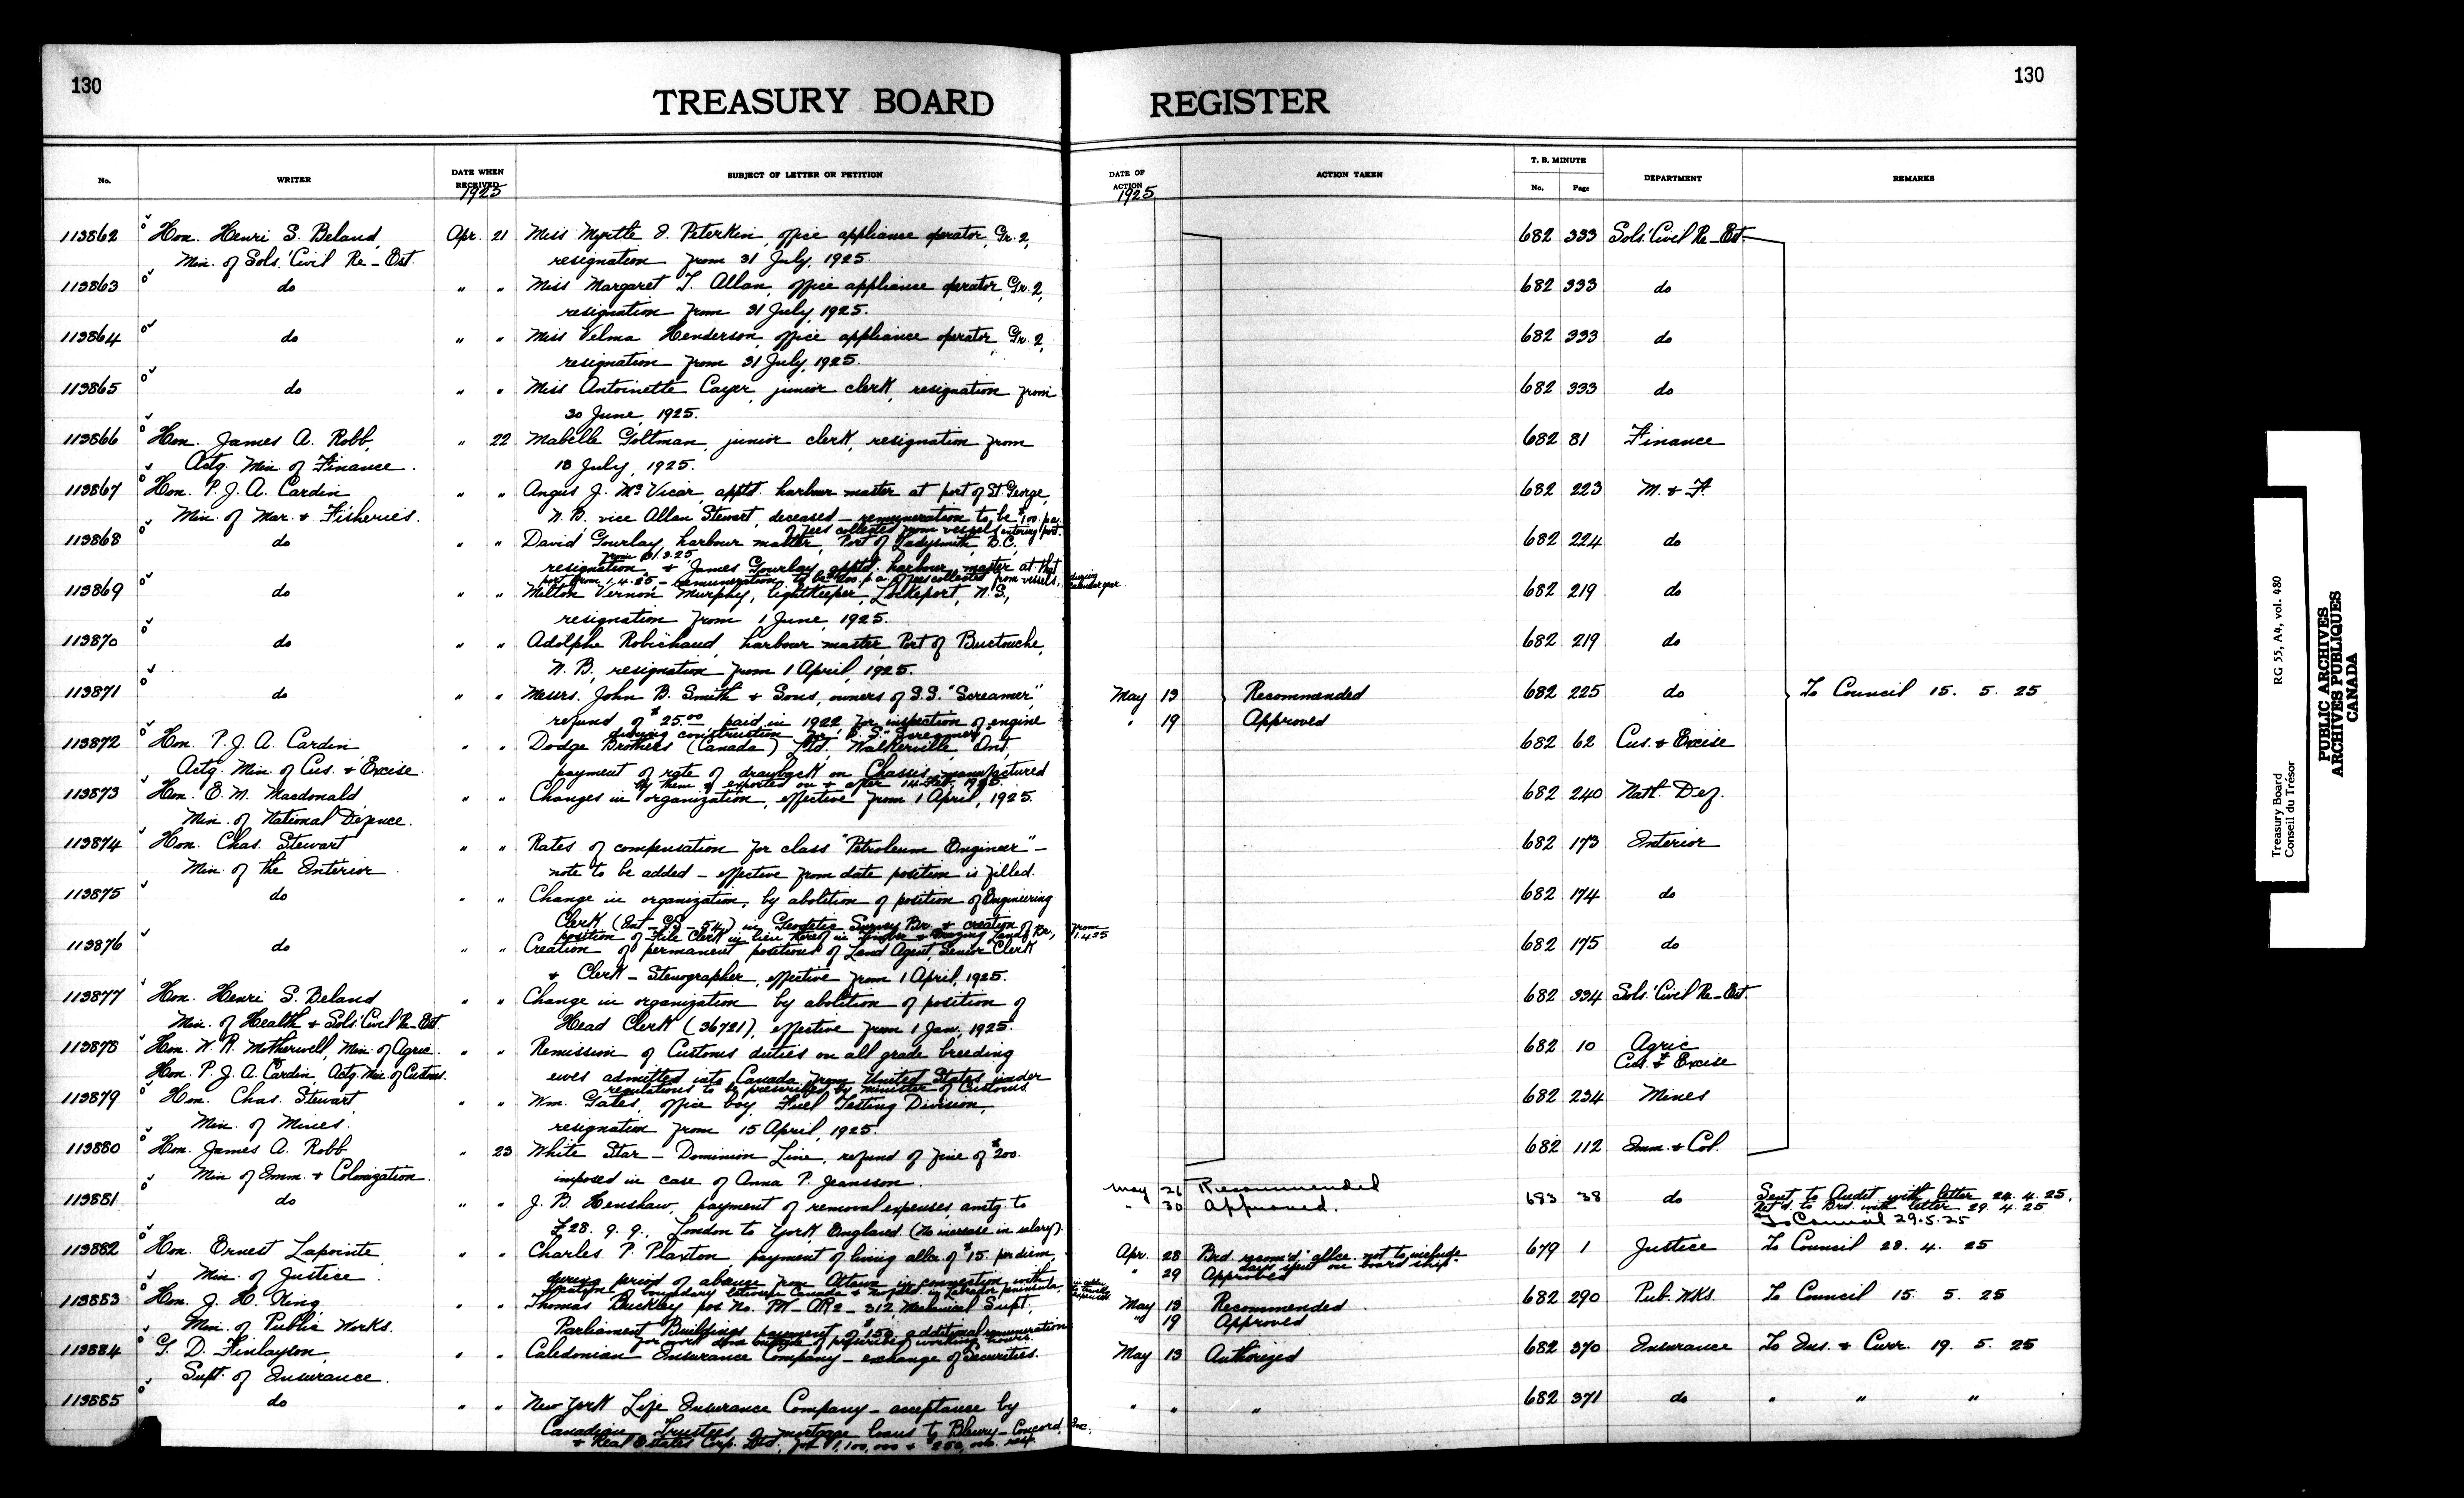 130
TREASURY BOARD REGISTER
130
No. WRITER DATE WHEN RECEIVED SUBJECT OF LETTER OR PETITION DATE OF ACTION ACTION TAKEN T. B. MINUTE No. Page DEPARTMENT REMARKS
1925 1925
113862 Hon. Henri S. Beland, Apr. 21 Miss Myrtle J. Peterkin, office appliance operator, Gr. 2, 682 333 Sols.' Civil Re-Est.
Min. of Sols.' Civil Re-Est. resignation from 31 July, 1925.
113863 do " " Miss Margaret T. Allan, office appliance operator, Gr. 2, 682 333 do
resignation from 31 July, 1925.
113864 do " " Miss Velma Henderson, office appliance operator, Gr. 2, 682 333 do
resignation from 31 July, 1925.
113865 do " " Miss Antoinette Cayer, junior clerk, resignation from 682 333 do
30 June, 1925.
113866 Hon. James A. Robb, " 22 Mabelle Goltman, junior clerk, resignation from 682 81 Finance
Actg. Min. of Finance. 18 July, 1925.
113867 Hon. P. J. A. Cardin " " Angus J. McVicar, apptd. harbour master at port of St. George, 682 223 M. & F.
Min. of Mar. & Fisheries. N. B. vice Allan Stewart, deceased - remuneration to be $100. p.a.
of fees collected from vessels entering port.
113868 do " " David Gourlay, harbour master, Port of Ladysmith, B.C., 682 224 do
from 31.3.25
resignation & James Gourlay apptd. harbour master at that
port from 1.4.25 - remuneration to be $200. p.a. of fees collected from vessels, during calendar year.
113869 do " " Milton Vernon Murphy, lightkeeper, Lockeport, N.S., 682 219 do
resignation from 1 June, 1925.
113870 do " " Adolphe Robichaud, harbour master, Port of Buctouche, 682 219 do
N. B., resignation from 1 April, 1925.
113871 do " " Messrs. John B. Smith & Sons, owners of S.S. "Screamer", May 13 Recommended 682 225 do To Council 15. 5. 25
refund of $25.00 paid in 1922 for inspection of engine " 19 Approved
during construction for S.S. "Screamer"
113872 Hon. P. J. A. Cardin " " Dodge Brothers (Canada) Ltd. Walkerville, Ont., 682 62 Cus. & Excise
Actg. Min. of Cus. & Excise. payment of rate of drawback on Chassis manufactured
by them & exported on & after 14 Feb. 1925.
113873 Hon. E. M. Macdonald, " " Changes in organization, effective from 1 April, 1925. 682 240 Natl. Def.
Min. of National Defence.
113874 Hon. Chas. Stewart " " Rates of compensation for class "Petroleum Engineer" - 682 173 Interior
Min. of the Interior note to be added - effective from date position is filled.
113875 do " " Change in organization, by abolition of position of Engineering 682 174 do
Clerk (Int - GS - 54) in Geodetic Survey Br. & creation of
position of File Clerk in lieu thereof in Timber & Grazing Lands Br., from 1.4.25
113876 do " " Creation of permanent positions of Land Agent, Senior Clerk 682 175 do
& Clerk - Stenographer, effective from 1 April, 1925.
113877 Hon. Henri S. Beland " " Change in organization by abolition of position of 682 334 Sols.' Civil Re-Est.
Min. of Health & Sols.' Civil Re-Est. Head Clerk (36721), effective from 1 Jan., 1925.
113878 Hon. W. R. Motherwell, Min. of Agric. " " Remission of Customs duties on all grade breeding 682 10 Agric
Hon. P. J. A. Cardin, Actg. Min. of Customs. ewes admitted into Canada from United States under Cus. & Excise
regulations to be prescribed by minister of Customs
113879 Hon. Chas. Stewart " " Wm. Gates, office boy, Fuel Testing Division, 682 234 Mines
Min. of Mines. resignation from 15 April, 1925.
113880 Hon. James A. Robb " 23 White Star - Dominion Line, refund of fine of $200. 682 112 Imm. & Col.
Min. of Imm. & Colonization. imposed in case of Anna P. Jeansson.
113881 do " " J. B. Henshaw, payment of removal expenses, amtg. to May 26 Recommended 683 38 do Sent to Audit with letter 24. 4. 25.
£28. 9. 9., London to York, England (No increase in salary). " 30 Approved. Ret'd. to Brd. with letter 29. 4. 25
To Council 29.5.25
113882 Hon. Ernest Lapointe, " " Charles P. Plaxton, payment of living allce. of $15. per diem, Apr. 28 Brd. recom'd. allce. not to include 679 1 Justice To Council 28. 4. 25
days spent on board ship.
Min. of Justice. during period of absence from Ottawa in connection with " 29 Approved
location of boundary between Canada & Newfld. in Labrador peninsula,
113883 Hon. J. H. King, " " Thomas Buckley pos. No. PW - AR2 - 312, Mechanical Supt., May 13 Recommended 682 290 Pub. Wks. To Council 15. 5. 25
Min. of Public Works. Parliament Buildings, payment of $150. additional remuneration " 19 Approved
for work done outside of prescribed working hours.
113884 G. D. Finlayson, " " Caledonian Insurance Company - exchange of Securities. May 13 Authorized 682 370 Insurance To Ins. & Curr. 19. 5. 25
Supt. of Insurance.
113885 do " " New York Life Insurance Company - acceptance by " " " 682 371 do " " "
Canadian Trustees of mortgage loans to Bleury-Concord, Inc.,
& Real Estates Corp. Ltd., for $1,100,000 & $250,000, resp.
Treasury Board RG 55, A4, vol. 480
Conseil du Trésor
PUBLIC ARCHIVES
ARCHIVES PUBLIQUES
CANADA